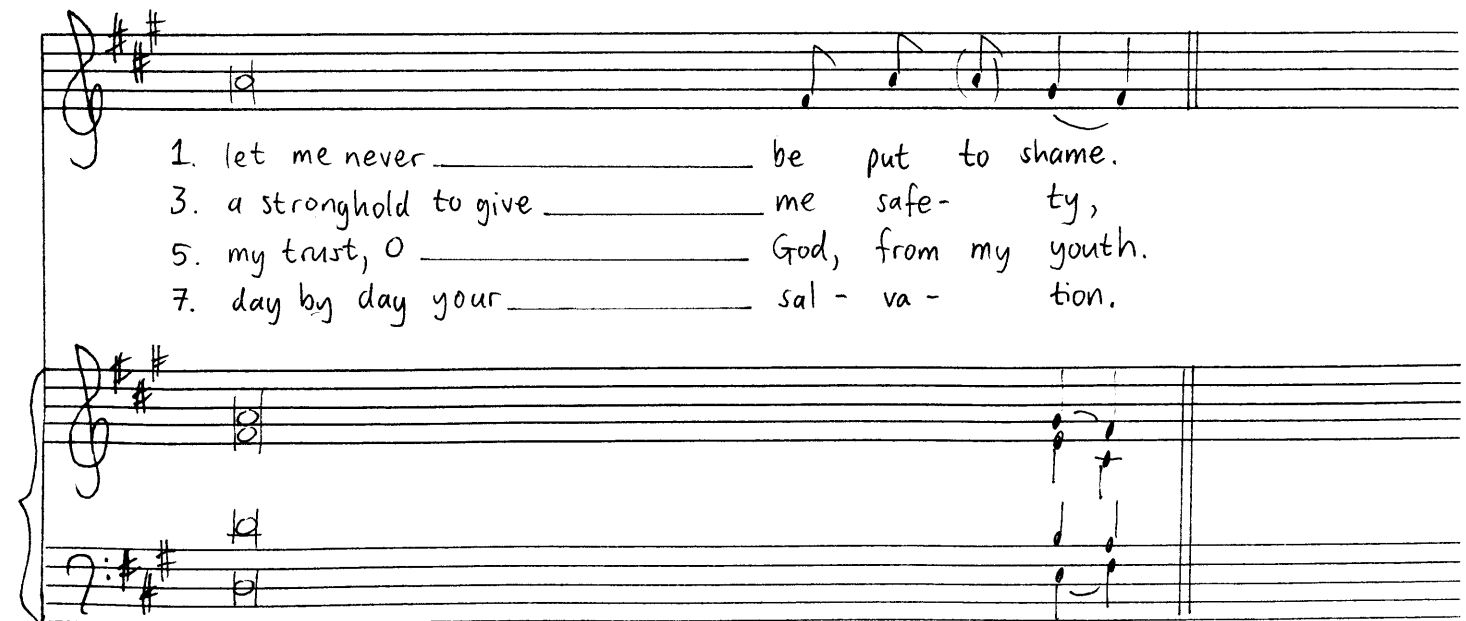 1. let me never ________ be put to shame.
3. a stronghold to give ________ me safe- ty,
5. my trust, O ________ God, from my youth.
7. day by day your ________ sal - va - tion.